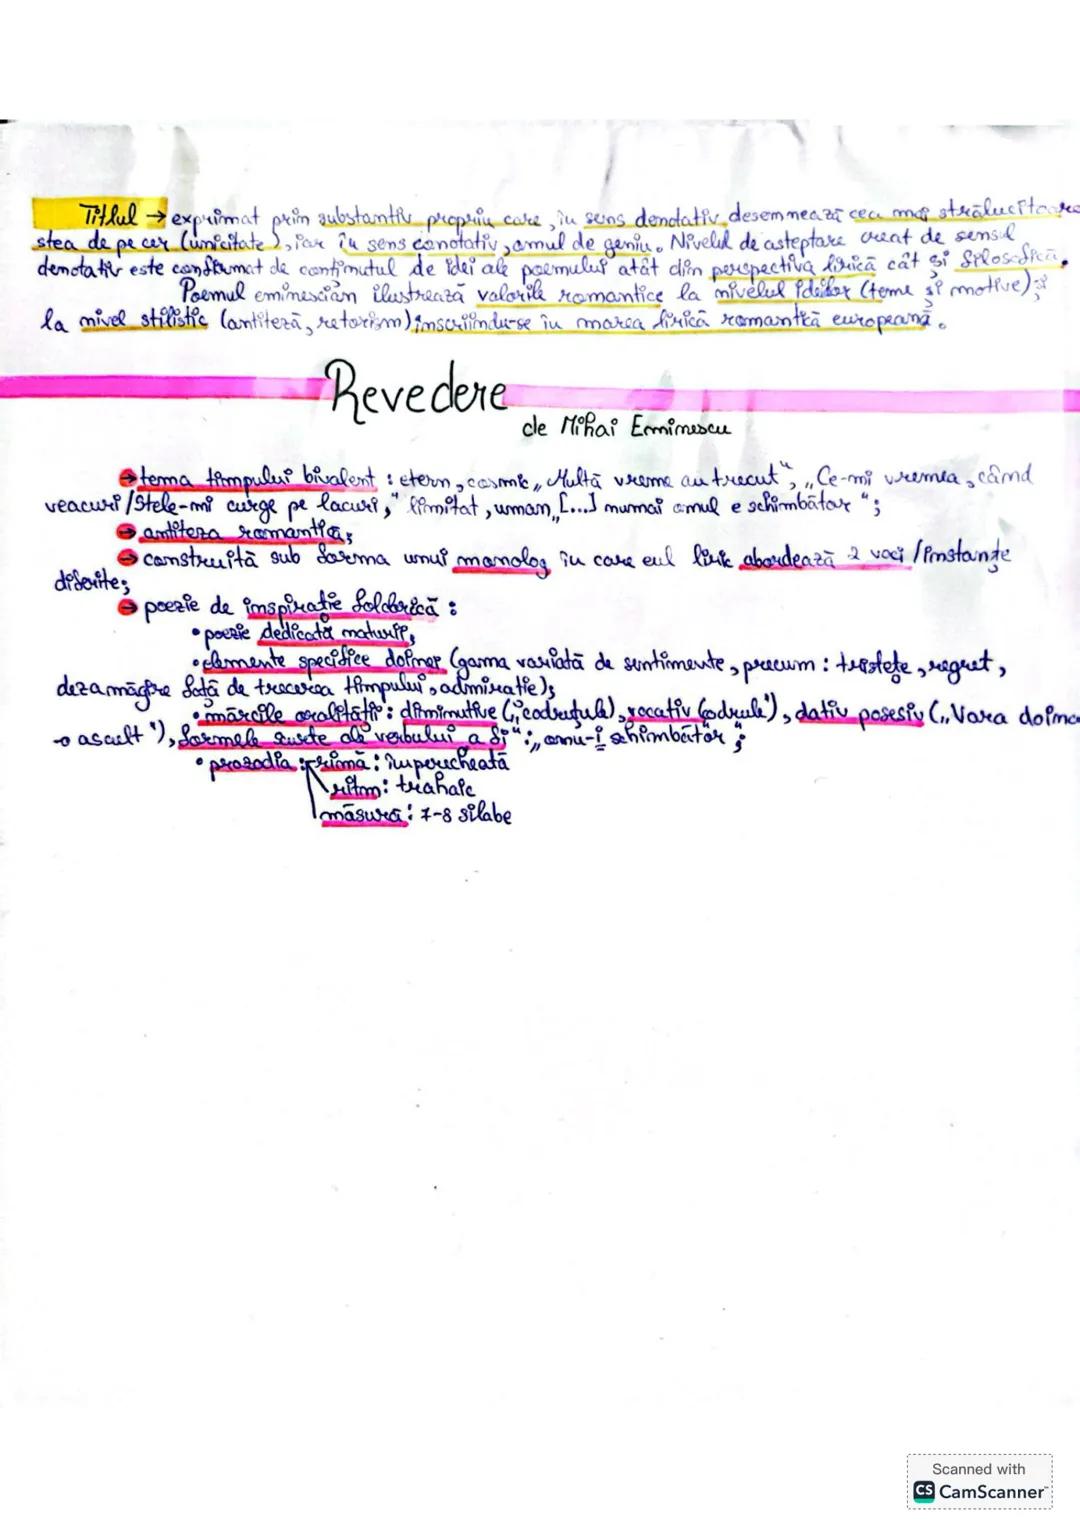 Titlul → exprimat prin substantiv propriu care, în sens denotativ desemnează cea mai strălucitoare
stea de pe cer (unicitate), iar în sens conotativ, omul de geniu. Nivelul de așteptare creat de sensul
denotativ este confirmat de conținutul de idei ale poemului atât din perspectiva lirică cât și filosofică.
Poemul eminescian ilustrează valorile romantice la nivelul ideilor (teme și motive) și
la nivel stilistic (antiteză, retorism) înscriindu-se în marea lirică romantică europeană.
Revedere
de Mihai Eminescu
→ tema timpului bivalent : etern, cosmic „Multă vreme au trecut", „Ce-mi vremea, când
veacuri/Stele-mi curge pe lacuri," limitat, uman „[...] numai omul e schimbător";
→ antiteza romantică;
→ construită sub forma unui monolog în care eul liric abordează 2 voci /instanțe
diferite;
→ poezie de inspirație folclorică :
• poezie dedicată naturii,
• elemente specifice doinei (gama variată de sentimente, precum : tristețe, regret,
dezamăgire față de trecerea timpului, admirație);
• mărcile oralității : diminutive („codruțule), vocativ (codrule"), dativ posesiv („Vara doina
-o ascult"), formele scurte ale verbului a fi" : „omu-i schimbător";
• prozodia : rimă : împerecheată
ritm : trohaic
măsură : 7-8 silabe
Scanned with
CS CamScanner